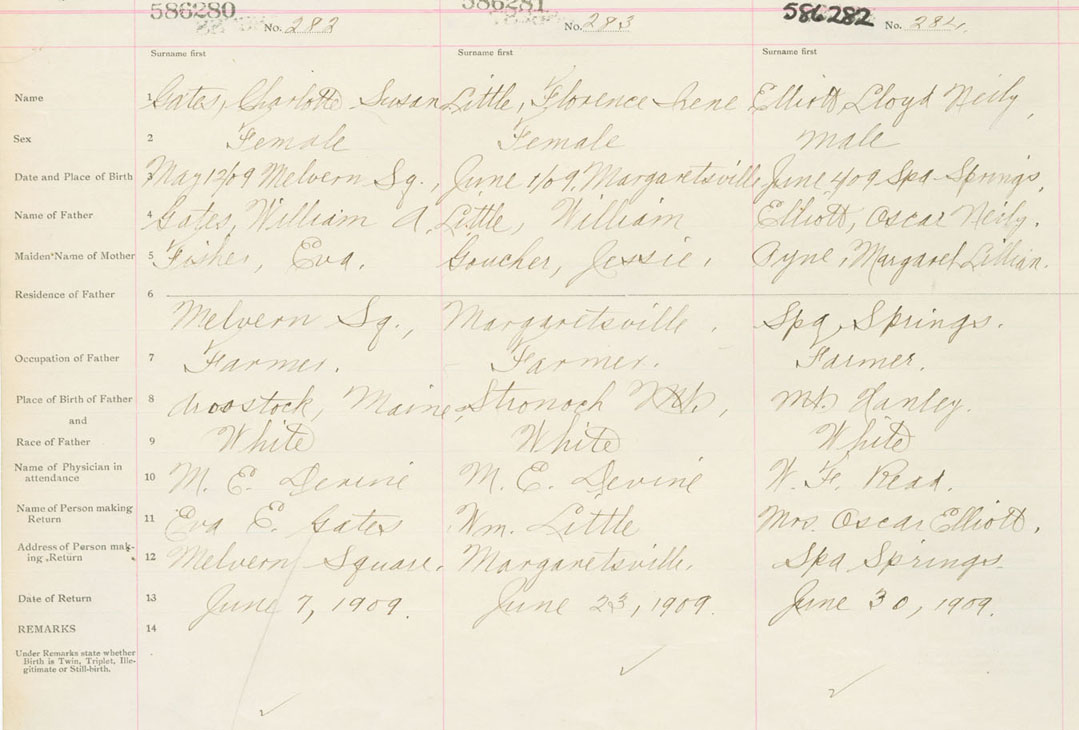 586280 No. 282 586281 No. 283 586282 No. 284.
Surname first Surname first Surname first
Name 1 Gates, Charlotte Susan Little, Florence Irene Elliott, Lloyd Neily,
Sex 2 Female Female Male
Date and Place of Birth 3 May 12/09 Melvern Sq., June 1/09, Margaretsville June 4/09 Spa Springs,
Name of Father 4 Gates, William A. Little, William Elliott, Oscar Neily.
Maiden Name of Mother 5 Fisher, Eva. Goucher, Jessie. Pyne, Margaret Lillian.
Residence of Father 6
Melvern Sq., Margaretsville. Spa Springs.
Occupation of Father 7 Farmer. Farmer. Farmer.
Place of Birth of Father 8 Aroostock, Maine, Stronach Mt, Mt Hanley.
and
Race of Father 9 White White White
Name of Physician in
attendance 10 M. E. Devine M. E. Devine W. F. Read.
Name of Person making
Return 11 Eva E. Gates Wm. Little Mrs. Oscar Elliott.
Address of Person mak-
ing Return 12 Melvern Square. Margaretsville. Spa Springs.
Date of Return 13 June 7, 1909. June 23, 1909. June 30, 1909.
REMARKS 14
Under Remarks state whether
Birth is Twin, Triplet, Ille-
gitimate or Still-birth.